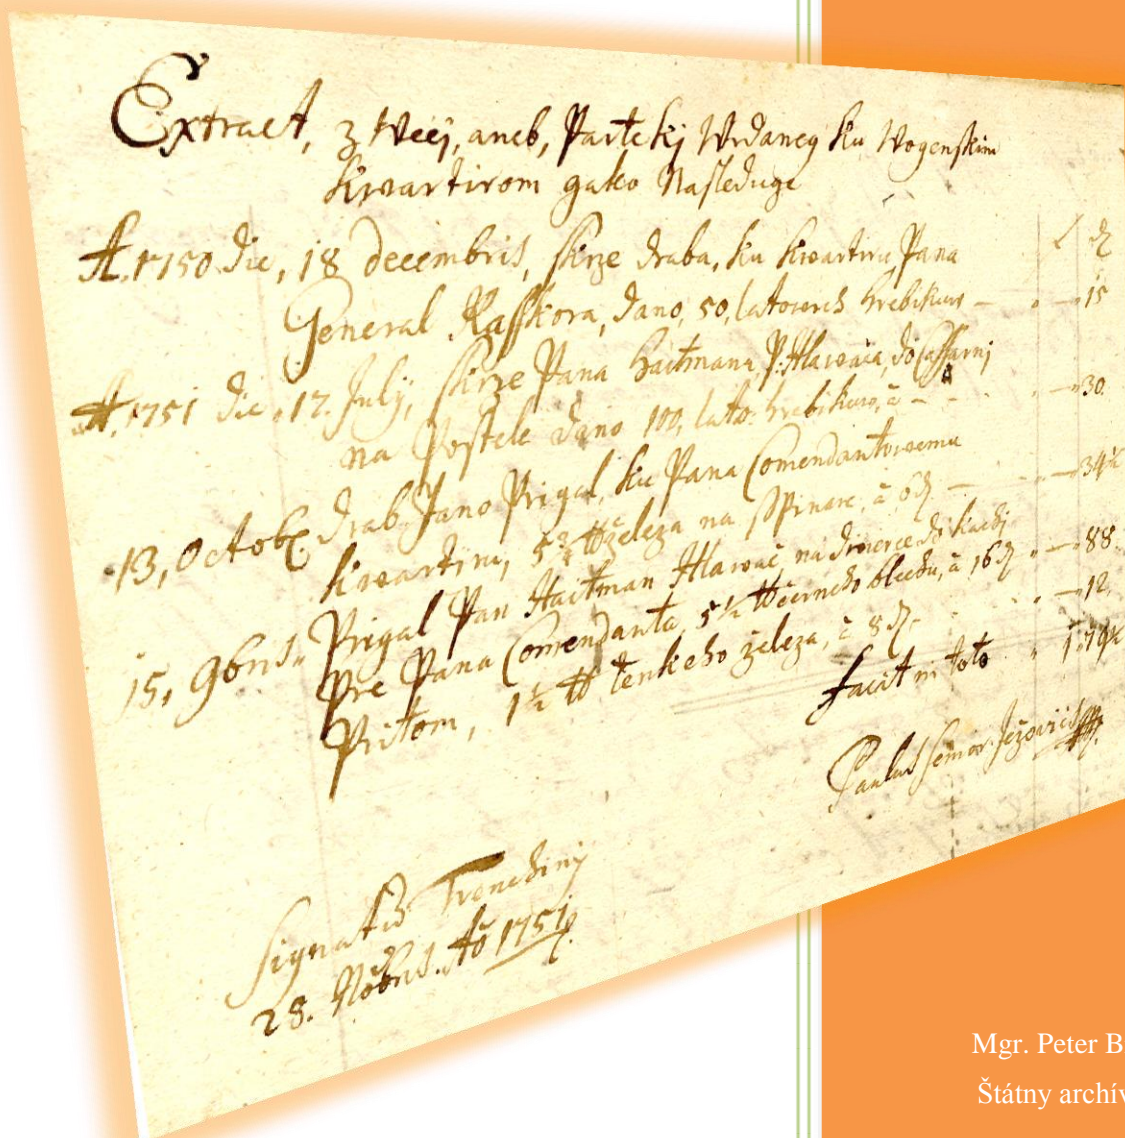 Extract, z Wecy, aneb, Partekj Wydaneg ku Wogenskim
kwartirom gako Nasleduge
A. 1750 die, 18 decembris, skrze draba, ku kwartiru Pana
General Kasskora, dano, 50, latowich hrebikuw — 15
A. 1751 die, 17. Julij, skrze Pana Haitmana, P: Hlawača, do Cassarnj
na Postele dano 100, lato: hrebikuw, à — 30.
13, Octob. drab Jano Prigal, ku Pana Comendantowemu
kwartiru, 5¾ železa na Spinare, à 6 — 34½
15, 9bris. Prigal Pan Haitman Hlawač, na dwierce do kachlj
pre Pana Comendanta, 5½ černeho blechu, à 16 — 88.
Pritom, 1½ tenkeho železa, à 8 — 12.
facit in toto 1.79½
Paulus Semor Ježovicz
Signatum Trenchinij
28. Novbris. Ao 1751.
Mgr. Peter B
Štátny archív